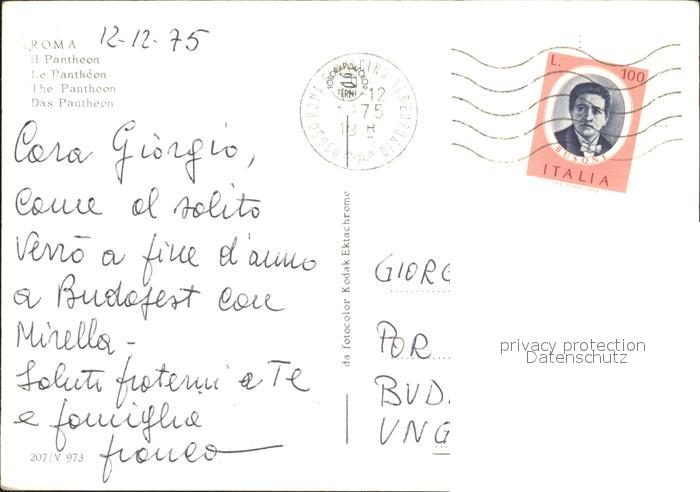 ROMA
Il Pantheon
Le Panthéon
The Pantheon
Das Pantheon
12-12-75
Caro Giorgio,
come al solito
verrò a fine d'anno
a Budapest con
Mirella -
Saluti fraterni a Te
e famiglia
Franco
207/V 973
da fotocolor Kodak Ektachrome
TERNI
12
75
19
L. 100
BUSONI
ITALIA
GIORG
POR
BUD.
UNG
privacy protection
Datenschutz